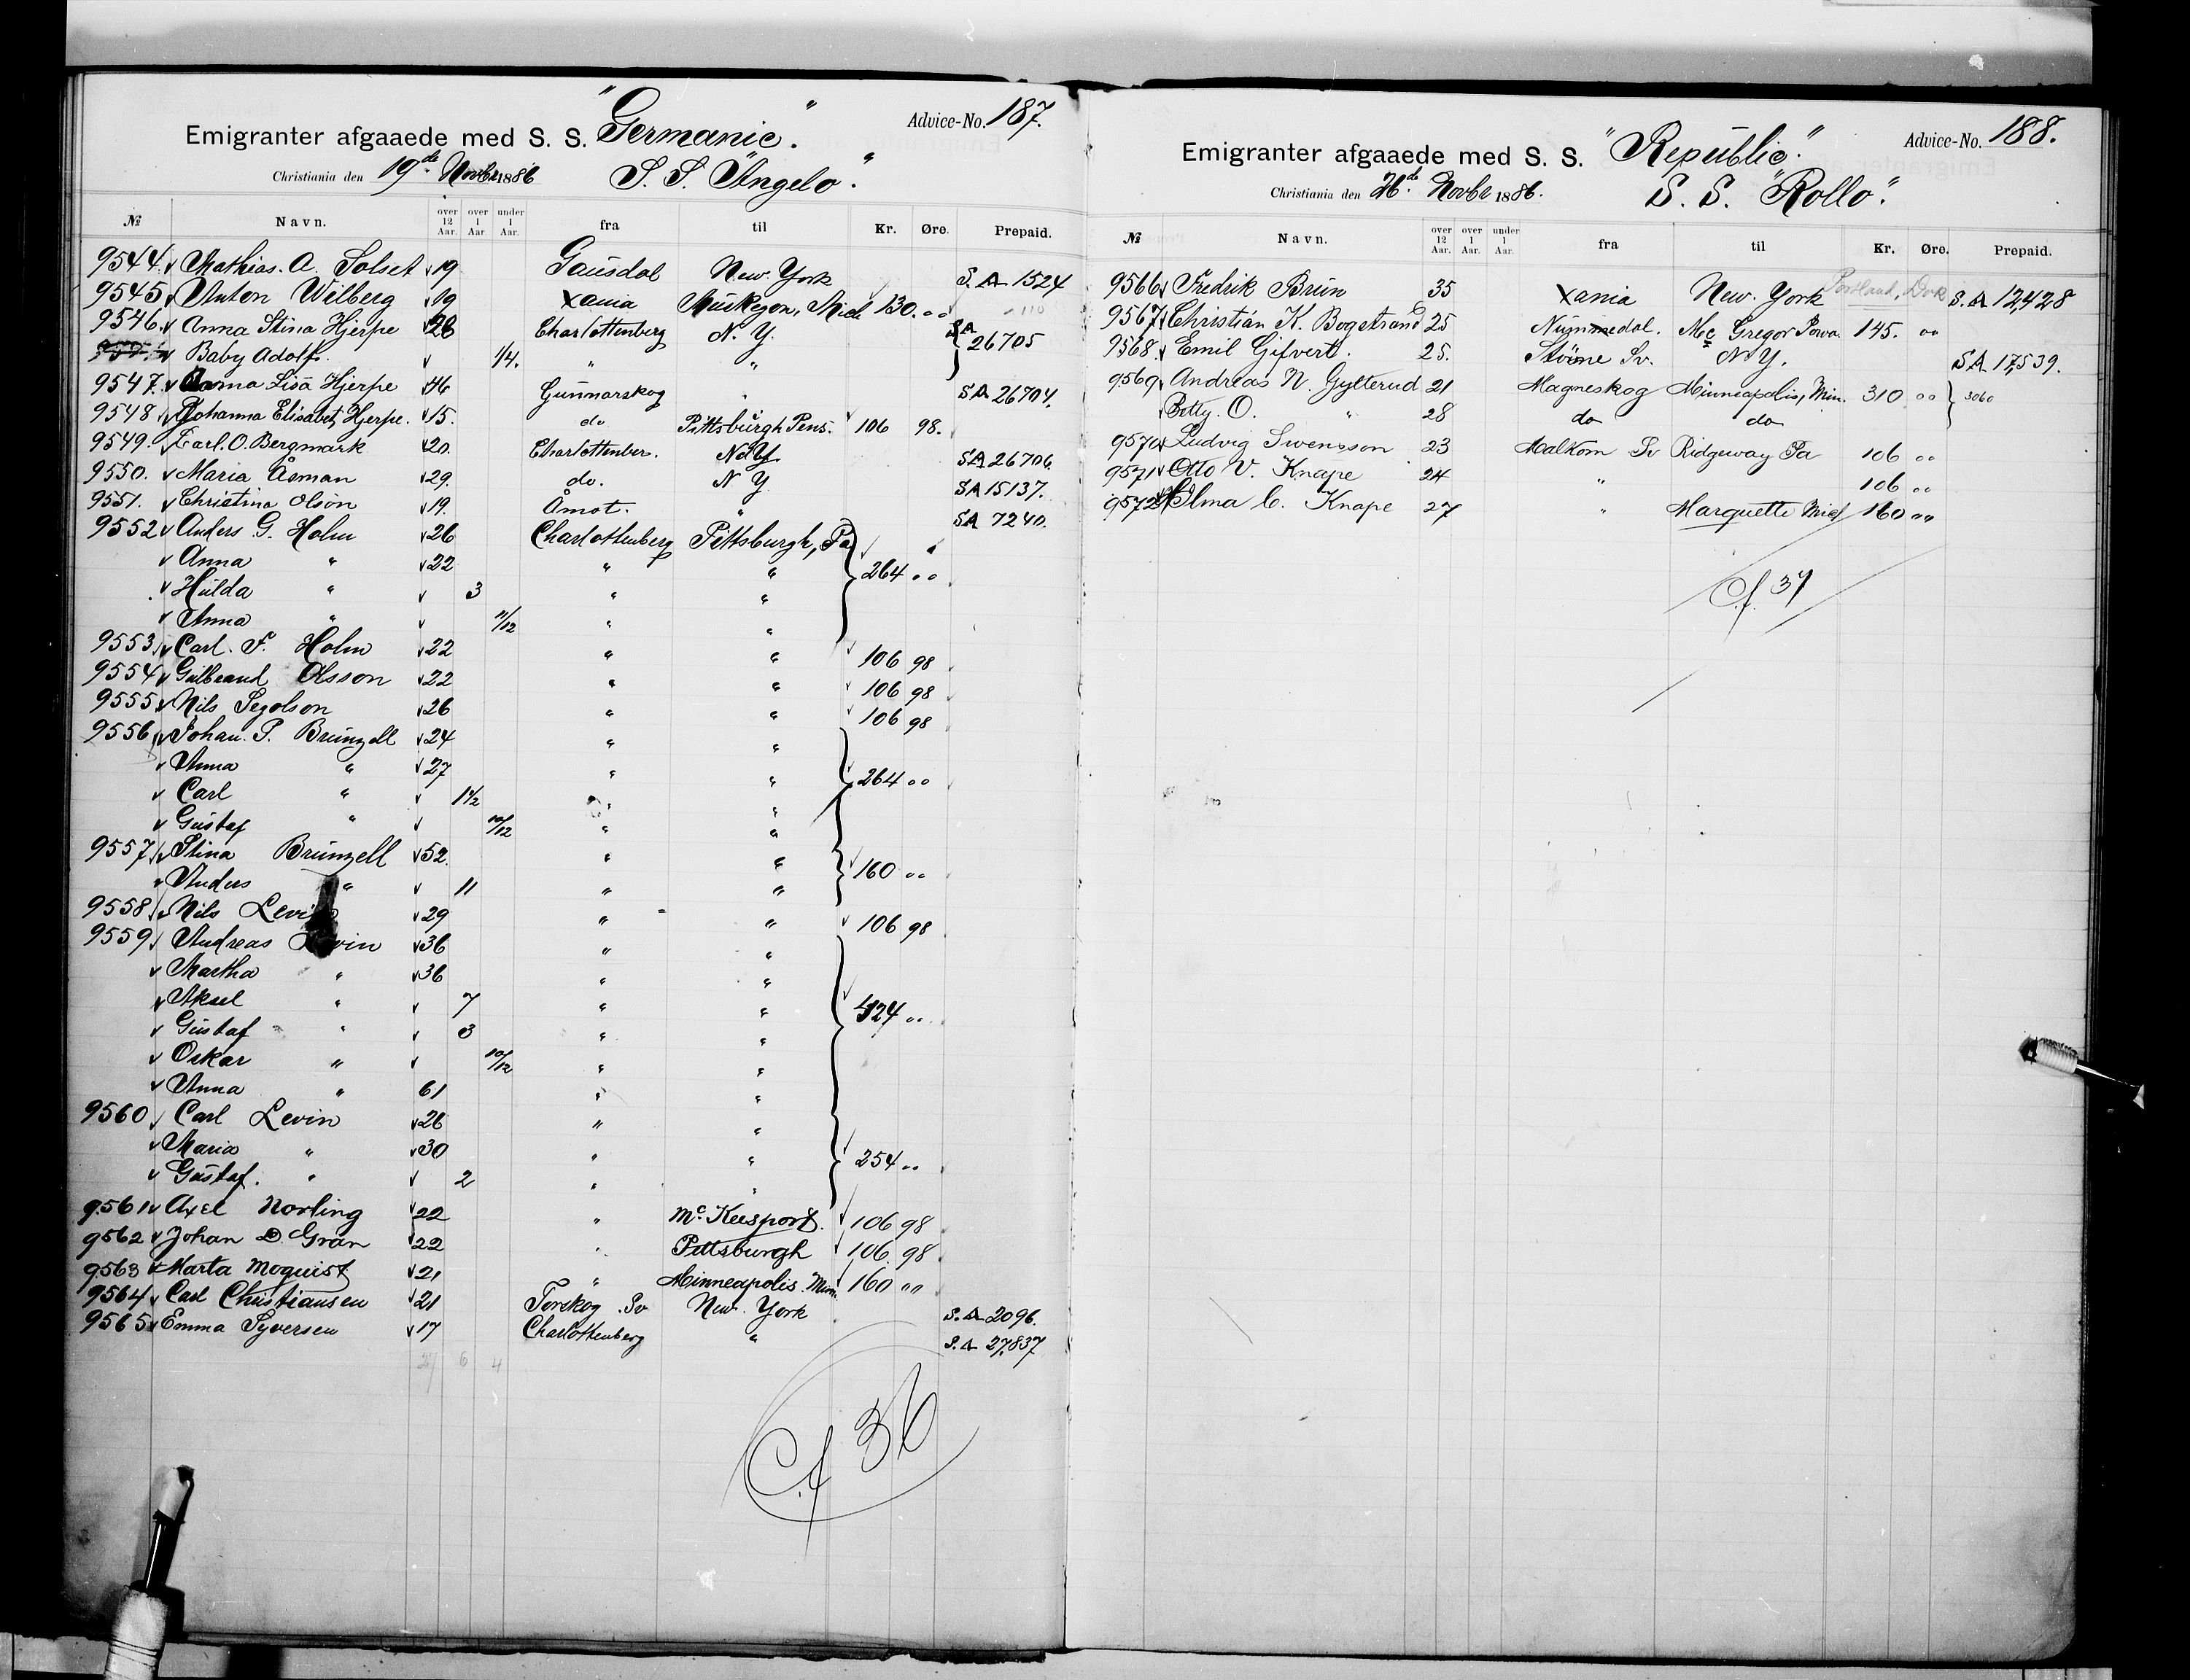 "Germanic". Advice-No. 187.
Emigranter afgaaede med S. S.
Christiania den 19de Novbr 1886 S. S. "Angelo".
№ Navn. over 12 Aar. over 1 Aar. under 1 Aar. fra til Kr. Øre. Prepaid.
9544 Mathias. A. Solset 19 Gausdal New York S. A 1524
9545 Anton Wilberg 19 Xania Muskegon, Mich 130. 00
9546. Anna Stina Hjerpe 28 Charlottenberg N. Y. SA 26705
Baby Adolf. 1/4. " "
9547. Anna Lisa Hjerpe 46 Gunnarskog " SA 26704.
9548 Johanna Elisabet Hjerpe. 15. do Pittsburgh Pens. 106 98.
9549. Carl. O. Bergmark 20. Charlottenber. N. Y. SA 26706.
9550. Maria Åsman 29. do. N Y SA 15137.
9551. Christina Olson 19. Åmot. " SA 7240.
9552 Anders G. Holm 26 Charlottenberg Pittsburgh, Pa
Anna " 22 " " 264 00
Hulda " 3 " "
Anna " 11/12 " "
9553 Carl. F. Holm 22 " " 106 98
9554 Gulbrand Olsson 22 " " 106 98
9555 Nils Segolson 26 " " 106 98
9556 Johan. P. Brunzell 24 " "
Anna " 27 " " 264 00
Carl " 1 1/2 " "
Gustaf " 10/12 " "
9557 Stina Brunzell 52. " " 160 00
Anders " 11 " "
9558 Nils Levin 29 " " 106 98
9559 Andreas Levin 36 " "
Martha " 36 " "
Aksel " 7 " " 424 00
Gustaf " 3 " "
Oskar " 10/12 " "
Anna " 61 " "
9560 Carl Levin 26 " "
Maria " 30 " " 254 00
Gustaf. " 2 " "
9561 Axel Norling 22 " Mc Keesport. 106 98
9562 Johan D. Grän 22 " Pittsburgh 106 98
9563 Marta Moquist 21 " Minneapolis. Min. 160 00
9564 Carl Christiansen 21 Torskog. Sv New. York S. A 2096.
9565 Emma Syversen 17 Charlottenberg " S. A 27,837
27 6 4
Cf 36
"Republic". Advice-No. 188.
Emigranter afgaaede med S. S.
Christiania den 26de Novbr 1886. S. S. "Rollo".
№ Navn. over 12 Aar. over 1 Aar. under 1 Aar. fra til Kr. Øre. Prepaid.
9566 Fredrik Brun 35 Xania New. York Portland, S. A 12,428
9567 Christian K. Bogstrand 25 Nummedal. Mc Gregor Iowa 145. 00
9568. Emil Gifvert. 25. Sv. N Y. SA 17,539.
9569 Andreas N. Gylterud 21 Magneskog Minneapolis, Min. 310 00 3060
Betty. O. " 28 do do
9570 Ludvig Swensson 23 Malkom Sv Ridgeway Pa 106 00
9571 Otto V. Knape 24 " 106 00
9572 Elma C. Knape 27 " Marquette Mich 160 00
Cf. 37